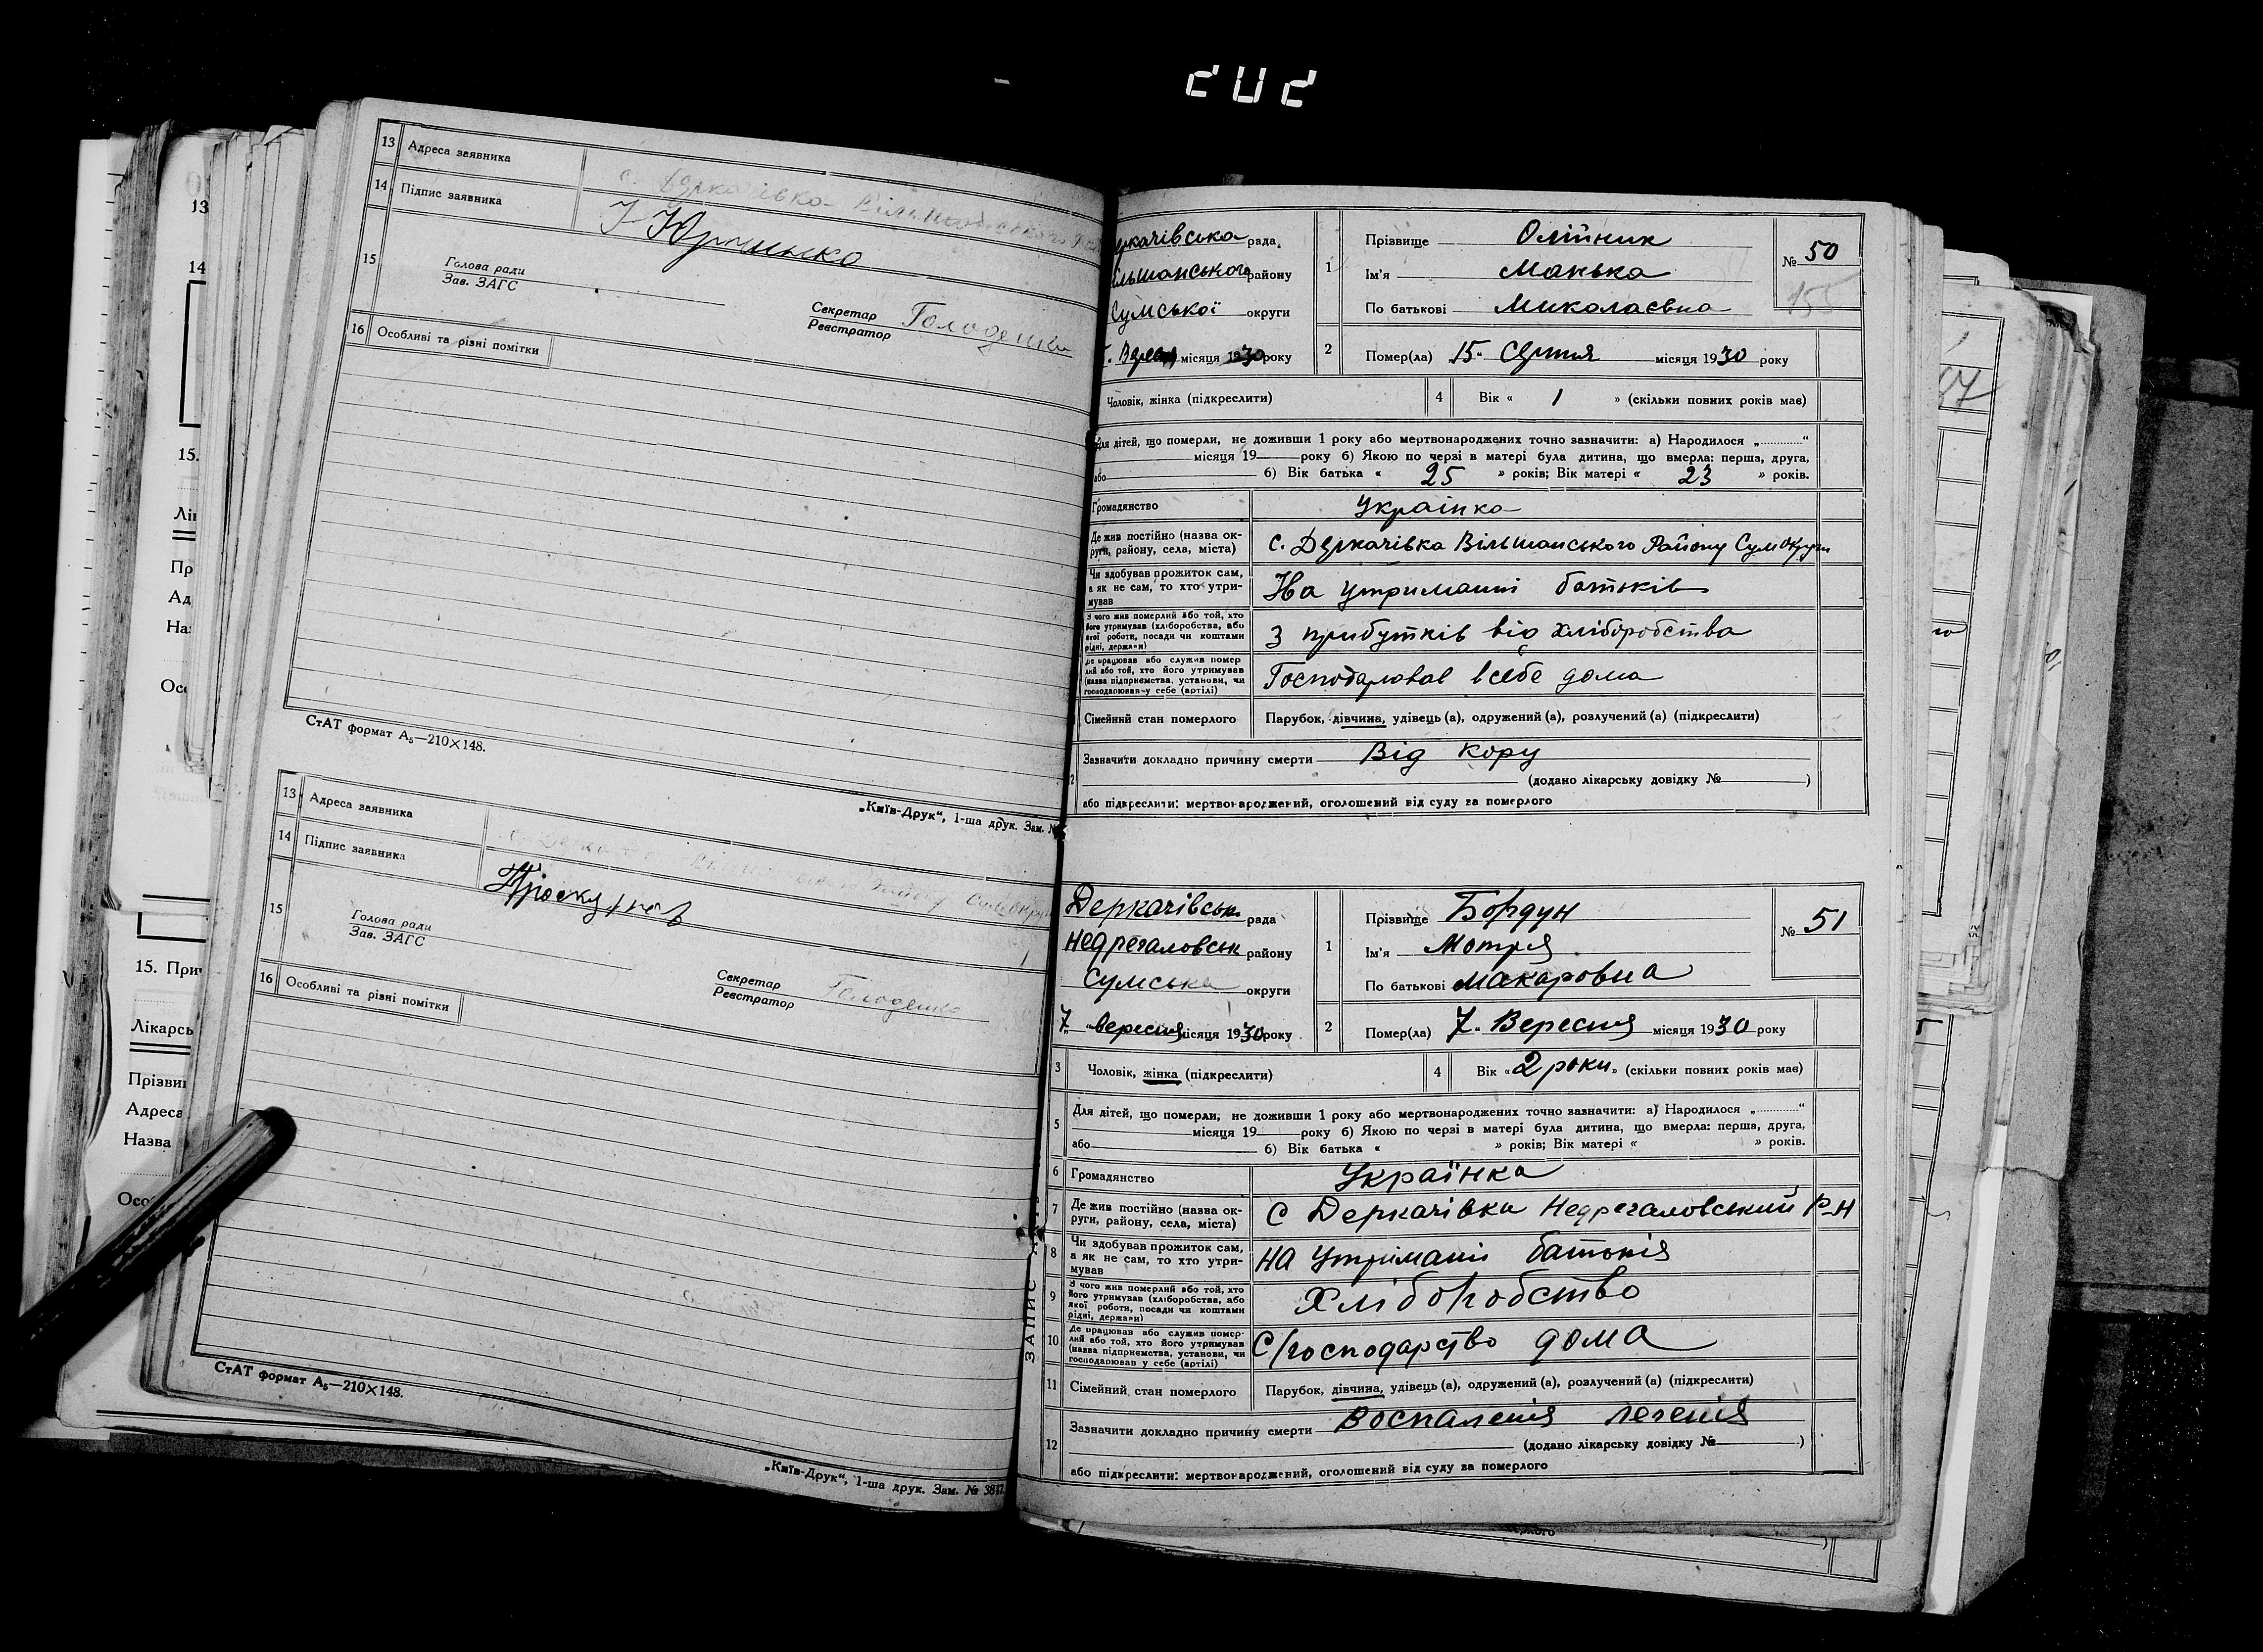 202
13 Адреса заявника
14 Підпис заявника
15 Голова ради
Зав. ЗАГС
Секретар
Реєстратор
16 Особливі та різні помітки
СтАТ формат А5—210×148.
„Київ-Друк“, 1-ша друк. Зам. №
13 Адреса заявника
14 Підпис заявника
15 Голова ради
Зав. ЗАГС
Секретар
Реєстратор
16 Особливі та різні помітки
СтАТ формат А5—210×148.
„Київ-Друк“, 1-ша друк. Зам. №
ркачівська рада
льшанського району
Сумської округи
місяця 1930 року
1 Прізвище Олійник
Ім'я Манька
По батькові Миколаєвна
№ 50
155
2 Помер(ла) 15 „ Серпня місяця 1930 року
Чоловік, жінка (підкреслити)
4 Вік « 1 » (скільки повних років має)
Для дітей, що померли, не доживши 1 року або мертвонароджених точно зазначити: а) Народилося „ “
місяця 19 року б) Якою по черзі в матері була дитина, що вмерла: перша, друга,
або б) Вік батька « 25 » років; Вік матері « 23 » років.
Громадянство Українка
Де жив постійно (назва ок-
руги, району, села, міста) с. Деркачівка Вільшанського Району Сум округи
Чи здобував прожиток сам,
а як не сам, то хто утри-
мував На утриманні батьків
З чого жив померлий або той, хто
його утримував (хліборобства, або
якої роботи, посади чи коштами
рідні, держави) З прибутків від хліборобства
Де працював або служив помер-
лий або той, хто його утримував
(назва підприємства, установи, чи
господарював у себе (артілі) Господарював всебе дома
Сімейний стан померлого Парубок, дівчина, удівець (а), одружений (а), розлучений (а) (підкреслити)
Зазначити докладно причину смерти Від кору
(додано лікарську довідку № )
або підкреслити: мертвонароджений, оголошений від суду за померлого
Деркачівськ рада
Недрегаловськ району
Сумська округи
7 „ вересня місяця 1930 року
1 Прізвище Бордун
Ім'я Мотря
По батькові Макаровна
№ 51
2 Помер(ла) 7 „ Вересня місяця 1930 року
3 Чоловік, жінка (підкреслити)
4 Вік « 2 роки » (скільки повних років має)
5 Для дітей, що померли, не доживши 1 року або мертвонароджених точно зазначити: а) Народилося „ “
місяця 19 року б) Якою по черзі в матері була дитина, що вмерла: перша, друга,
або б) Вік батька « » років; Вік матері « » років.
6 Громадянство Українка
7 Де жив постійно (назва ок-
руги, району, села, міста) С Деркачівка Недрегаловський Р-Н
8 Чи здобував прожиток сам,
а як не сам, то хто утри-
мував на утримані батьків
9 З чого жив померлий або той, хто
його утримував (хліборобства, або
якої роботи, посади чи коштами
рідні, держави) Хліборобство
10 Де працював або служив помер-
лий або той, хто його утримував
(назва підприємства, установи, чи
господарював у себе (артілі) С/господарство дома
11 Сімейний стан померлого Парубок, дівчина, удівець (а), одружений (а), розлучений (а) (підкреслити)
12 Зазначити докладно причину смерти Воспаленія легенів
(додано лікарську довідку № )
або підкреслити: мертвонароджений, оголошений від суду за померлого
ЗАПИС